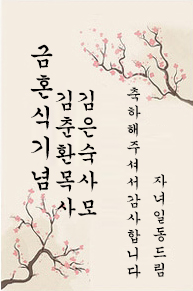 금혼식기념
김춘환목사
김은숙사모
축하해주셔서감사합니다
자녀일동드림